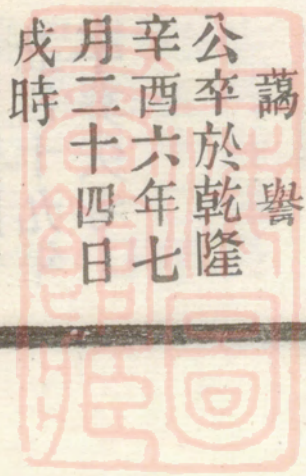 藹譽
公卒於乾隆
辛酉六年七
月二十四日
戌時